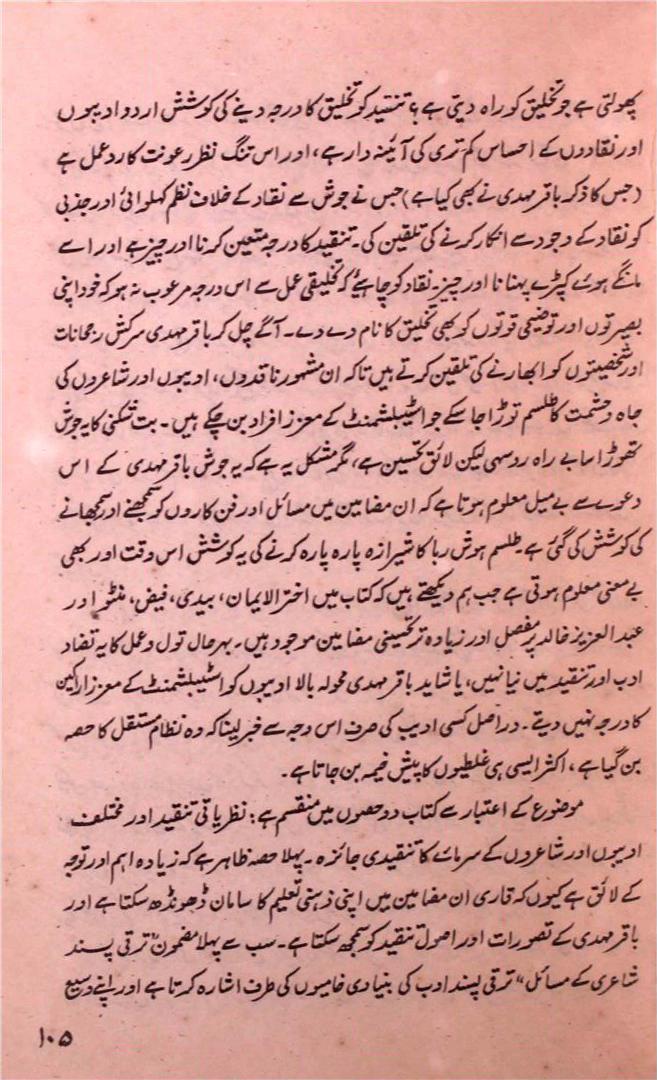 پھولتی ہے جو تخلیق کو راہ دیتی ہے؟ تنقید کو تخلیق کا درجہ دینے کی کوشش اردو ادیبوں
اور نقادوں کے احساس کم تری کی آئینہ دار ہے، اور اس تنگ نظر رعونت کا ردعمل ہے
(جس کا ذکر باقر مہدی نے بھی کیا ہے) جس نے جوش سے نقاد کے خلاف نظم کہلوائی اور جذبی
کو نقاد کے وجود سے انکار کرنے کی تلقین کی۔ تنقید کا درجہ متعین کرنا اور چیز ہے اور اسے
مانگے ہوئے کپڑے پہنانا اور چیز۔ نقاد کو چاہئے کہ تخلیقی عمل سے اس درجہ مرعوب نہ ہو کہ خود اپنی
بصیرتوں اور توضیحی قوتوں کو بھی تخلیق کا نام دے دے۔ آگے چل کر باقر مہدی سرکش رجحانات
اور شخصیتوں کو ابھارنے کی تلقین کرتے ہیں تاکہ ان مشہور ناقدوں، ادیبوں اور شاعروں کی
جاہ و حشمت کا طلسم توڑا جا سکے جو اسٹیبلشمنٹ کے معزز افراد بن چکے ہیں۔ بت شکنی کا یہ جوش
تھوڑا سا بے راہ رو سہی لیکن لائق تحسین ہے، مگر مشکل یہ ہے کہ یہ جوش باقر مہدی کے اس
دعوے سے بے میل معلوم ہوتا ہے کہ ان مضامین میں مسائل اور فن کاروں کو سمجھنے اور سمجھانے
کی کوشش کی گئی ہے۔ طلسم ہوش ربا کا شیرازہ پارہ پارہ کرنے کی یہ کوشش اس وقت اور بھی
بے معنی معلوم ہوتی ہے جب ہم دیکھتے ہیں کہ کتاب میں اختر الایمان، بیدی، فیض، منٹو اور
عبدالعزیز خالد پر مفصل اور زیادہ تر تحسینی مضامین موجود ہیں۔ بہرحال قول و عمل کا یہ تضاد
ادب اور تنقید میں نیا نہیں، یا شاید باقر مہدی محولہ بالا ادیبوں کو اسٹیبلشمنٹ کے معزز اراکین
کا درجہ نہیں دیتے۔ در اصل کسی ادیب کی صرف اس وجہ سے خبر لینا کہ وہ نظام مستقل کا حصہ
بن گیا ہے، اکثر ایسی ہی غلطیوں کا پیش خیمہ بن جاتا ہے۔
موضوع کے اعتبار سے کتاب دو حصوں میں منقسم ہے: نظریاتی تنقید اور مختلف
ادیبوں اور شاعروں کے سرمائے کا تنقیدی جائزہ۔ پہلا حصہ ظاہر ہے کہ زیادہ اہم اور توجہ
کے لائق ہے کیوں کہ قاری ان مضامین میں اپنی ذہنی تعلیم کا سامان ڈھونڈھ سکتا ہے اور
باقر مہدی کے تصورات اور اصول تنقید کو سمجھ سکتا ہے۔ سب سے پہلا مضمون "ترقی پسند
شاعری کے مسائل" ترقی پسند ادب کی بنیادی خامیوں کی طرف اشارہ کرتا ہے اور اپنے وسیع
۱۰۵